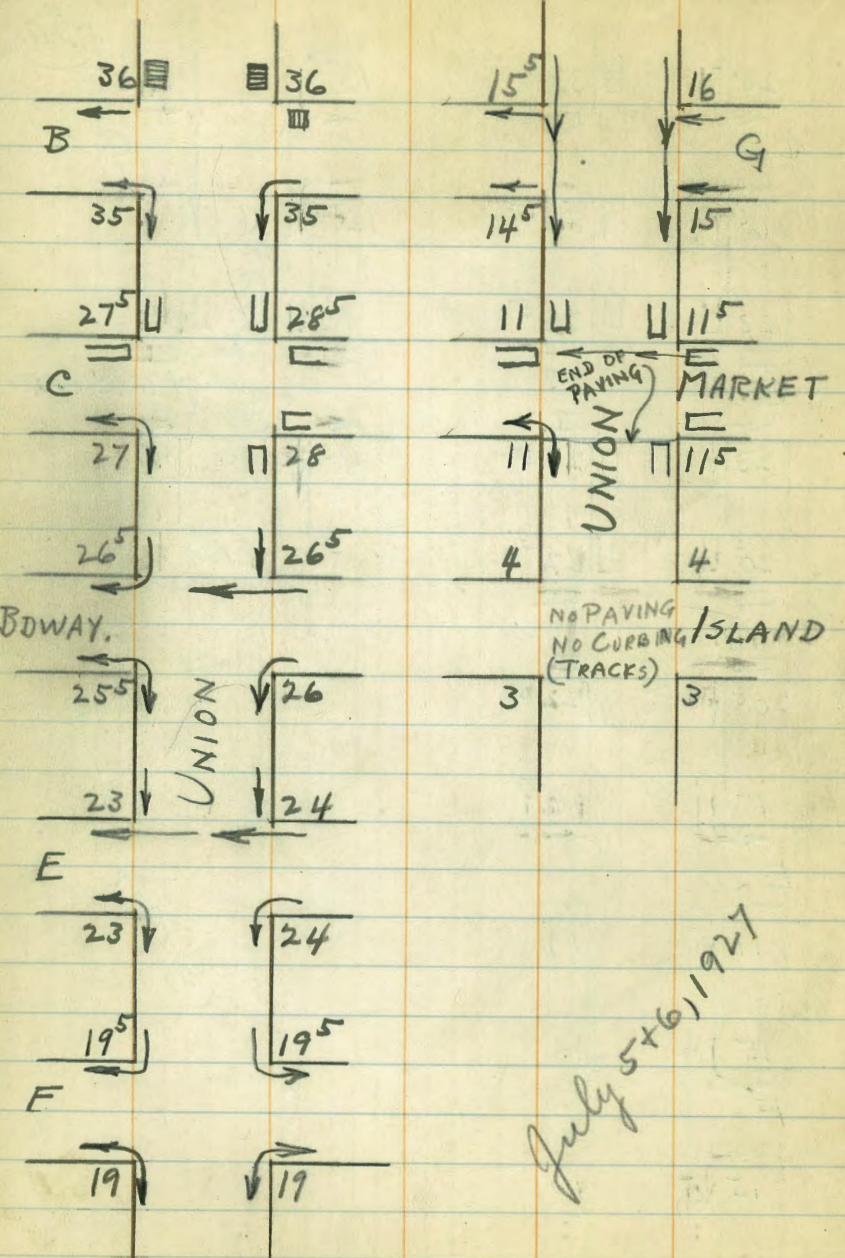 36 36
B
35 35
27⁵ 28⁵
C
27 28
26⁵ 26⁵
BDWAY.
25⁵ 26
UNION
23 24
E
23 24
19⁵ 19⁵
F
19 19
15⁵ 16
G
14⁵ 15
11 11⁵
END OF
PAVING
MARKET
11 11⁵
UNION
4 4
NO PAVING
NO CURBING
(TRACKS)
ISLAND
3 3
July 5+6, 1927